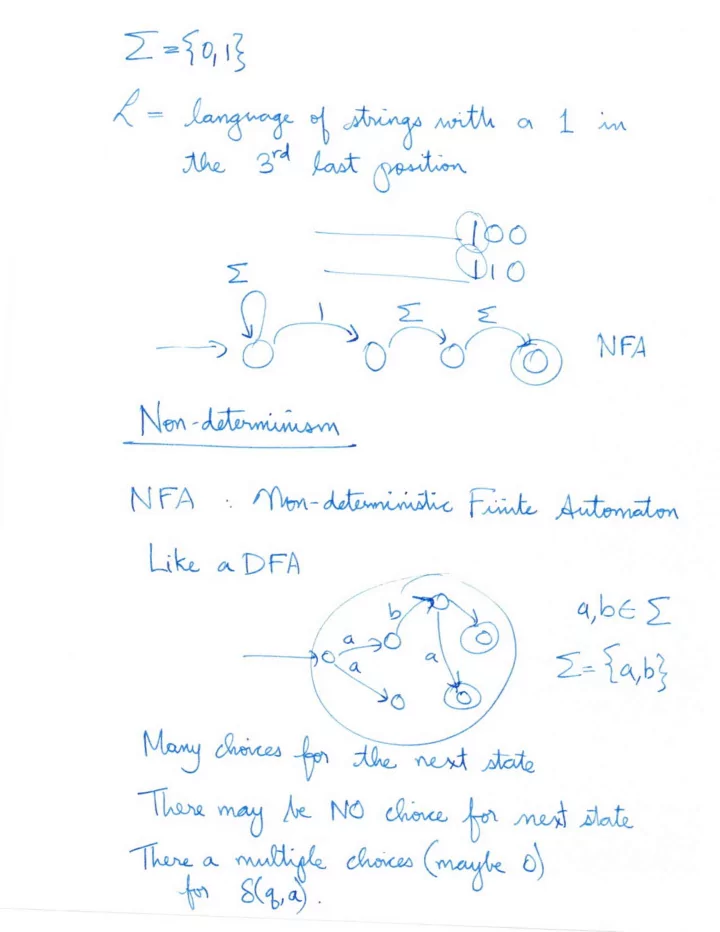 Σ = {0,1}
L = language of strings with a 1 in
the 3rd last position
100
110
Σ
1 Σ Σ
NFA
Non-determinism
NFA : Non-deterministic Finite Automaton
Like a DFA
b
a
a
a
a,b ∈ Σ
Σ = {a,b}
Many choices for the next state
There may be NO choice for next state
There a multiple choices (maybe 0)
for δ(q,a).